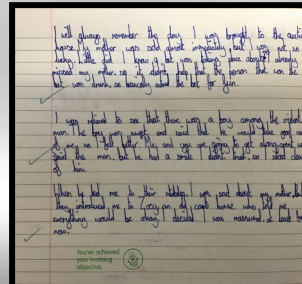 I will always remember the day I was brought to the auction
house. My mother was sold almost immediately, but I was not so
lucky. Little did I know a bet was taking place about
missed my mother, so it that the person that won the
bet was drunk so basically the bet for fun.
I was relieved to see that there was a boy among the
man. The boy was sweet and said that he would take good care
of me, so I felt better. "Me and you are going to get along
said the man, but he had a smile I didn't trust, so I stood
of him.
When he led me to their stables, I was sad about my mother, but
they introduced me to a horse who told me
everything would be okay. I decided I was reassured, at least for
now.
You've achieved
your learning
objective.